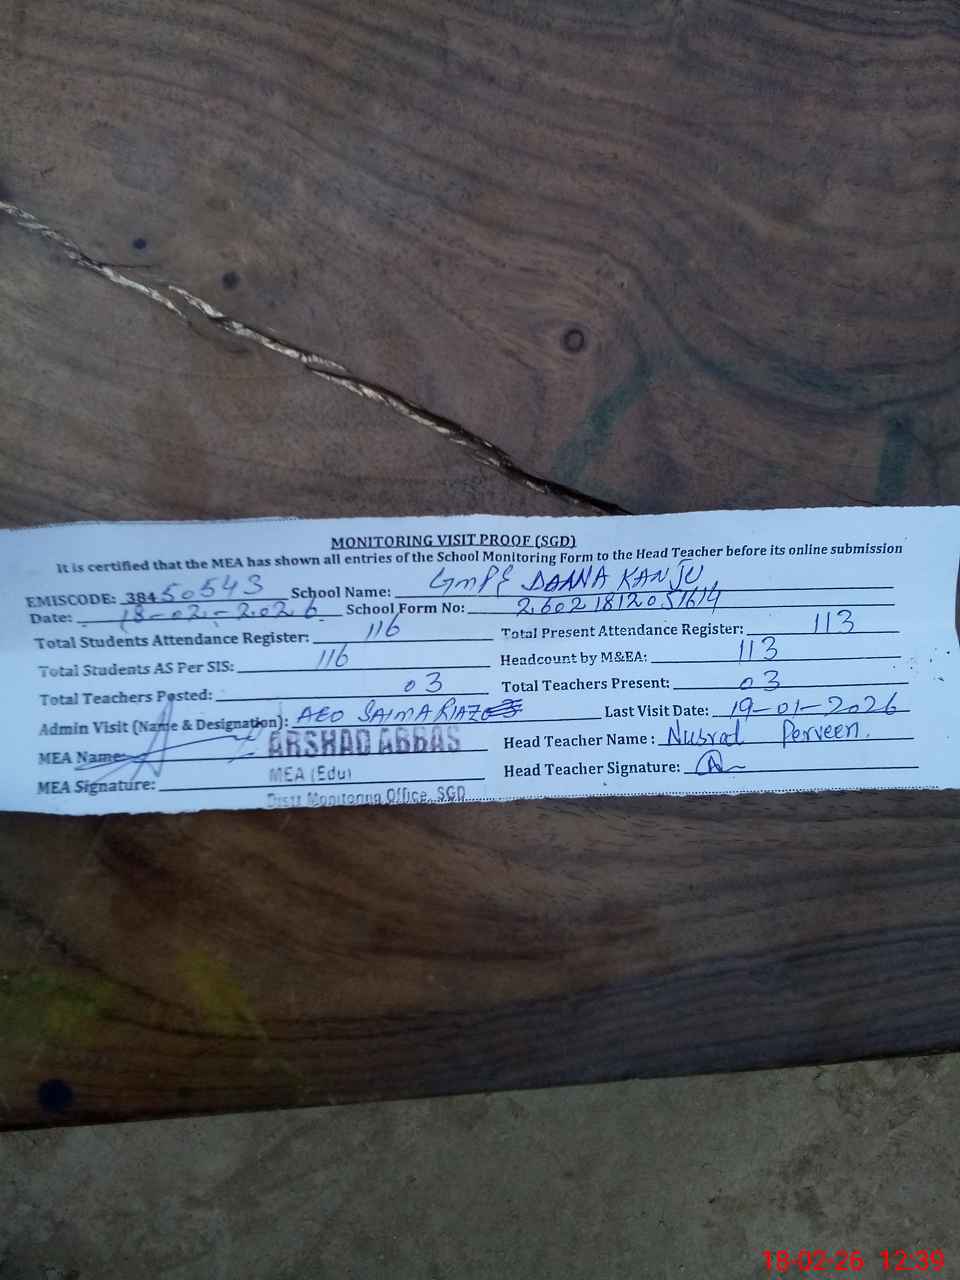 MONITORING VISIT PROOF (SGD)
It is certified that the MEA has shown all entries of the School Monitoring Form to the Head Teacher before its online submission
EMISCODE: 38450543 School Name: GMPS DAANA KANJU
Date: 18-02-2026 School Form No: 26021812051614
Total Students Attendance Register: 116 Total Present Attendance Register: 113
Total Students AS Per SIS: 116 Headcount by M&EA: 113
Total Teachers Posted: 03 Total Teachers Present: 03
Admin Visit (Name & Designation): AEO SAIMA RIAZ Last Visit Date: 19-01-2026
MEA Name: ARSHAD ABBAS Head Teacher Name : Nusrat Perveen.
MEA (Edu)
MEA Signature: Head Teacher Signature:
Distt Monitoring Office, SGD
18-02-26 12:39